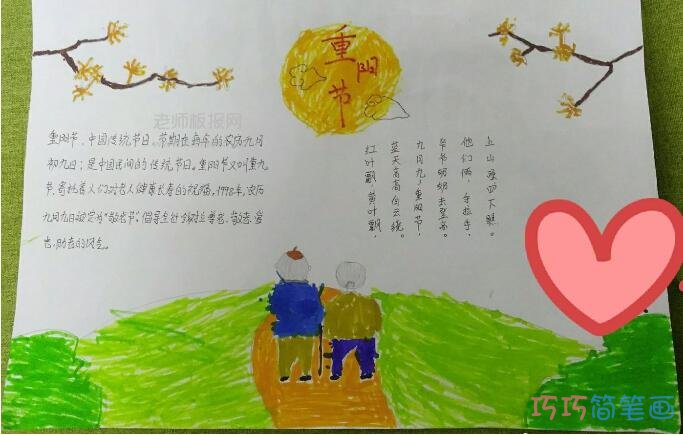 重阳节
老师板报网
重阳节、中国传统节日。节期在每年的农历九月
初九；是中国民间的传统节日。重阳节又叫重九
节，寄托着人们对老人健康长寿的祝福，1998年，农历
九月九日被定为“敬老节”，倡导全社会树立尊老、敬老、爱
老，助老的风气。
红叶飘，黄叶飘，
蓝天高高白云绕。
九月九，重阳节，
爷爷奶奶去登高。
他们俩，手拉手，
上山顶四下瞧。
巧巧简笔画